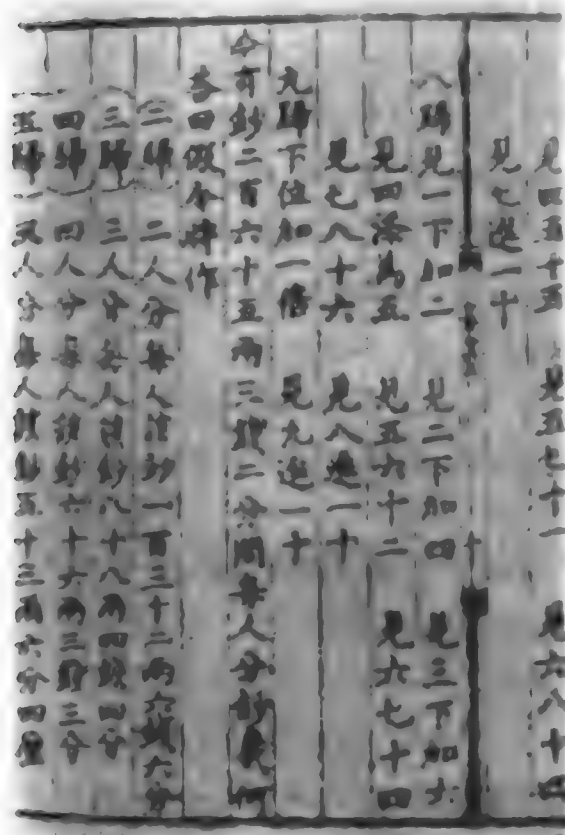 見四五十五 見五七十一 見六八十四
見七進一十
八歸見一下加二 見二下加四 見三下加六
見四添爲五 見五六十二 見六七十四
見七八十六 見八進一十
九歸下位加一倍 見九進一十
今有鈔二百六十五兩三錢二分問每人分鈔幾何
答曰 歸作
二歸 二人分每人該鈔一百三十二兩六錢六分
三歸 三人分每人該鈔八十八兩四錢四分
四歸 四人分每人該鈔六十六兩三錢三分
五歸 五人分每人該鈔五十三兩六分四釐